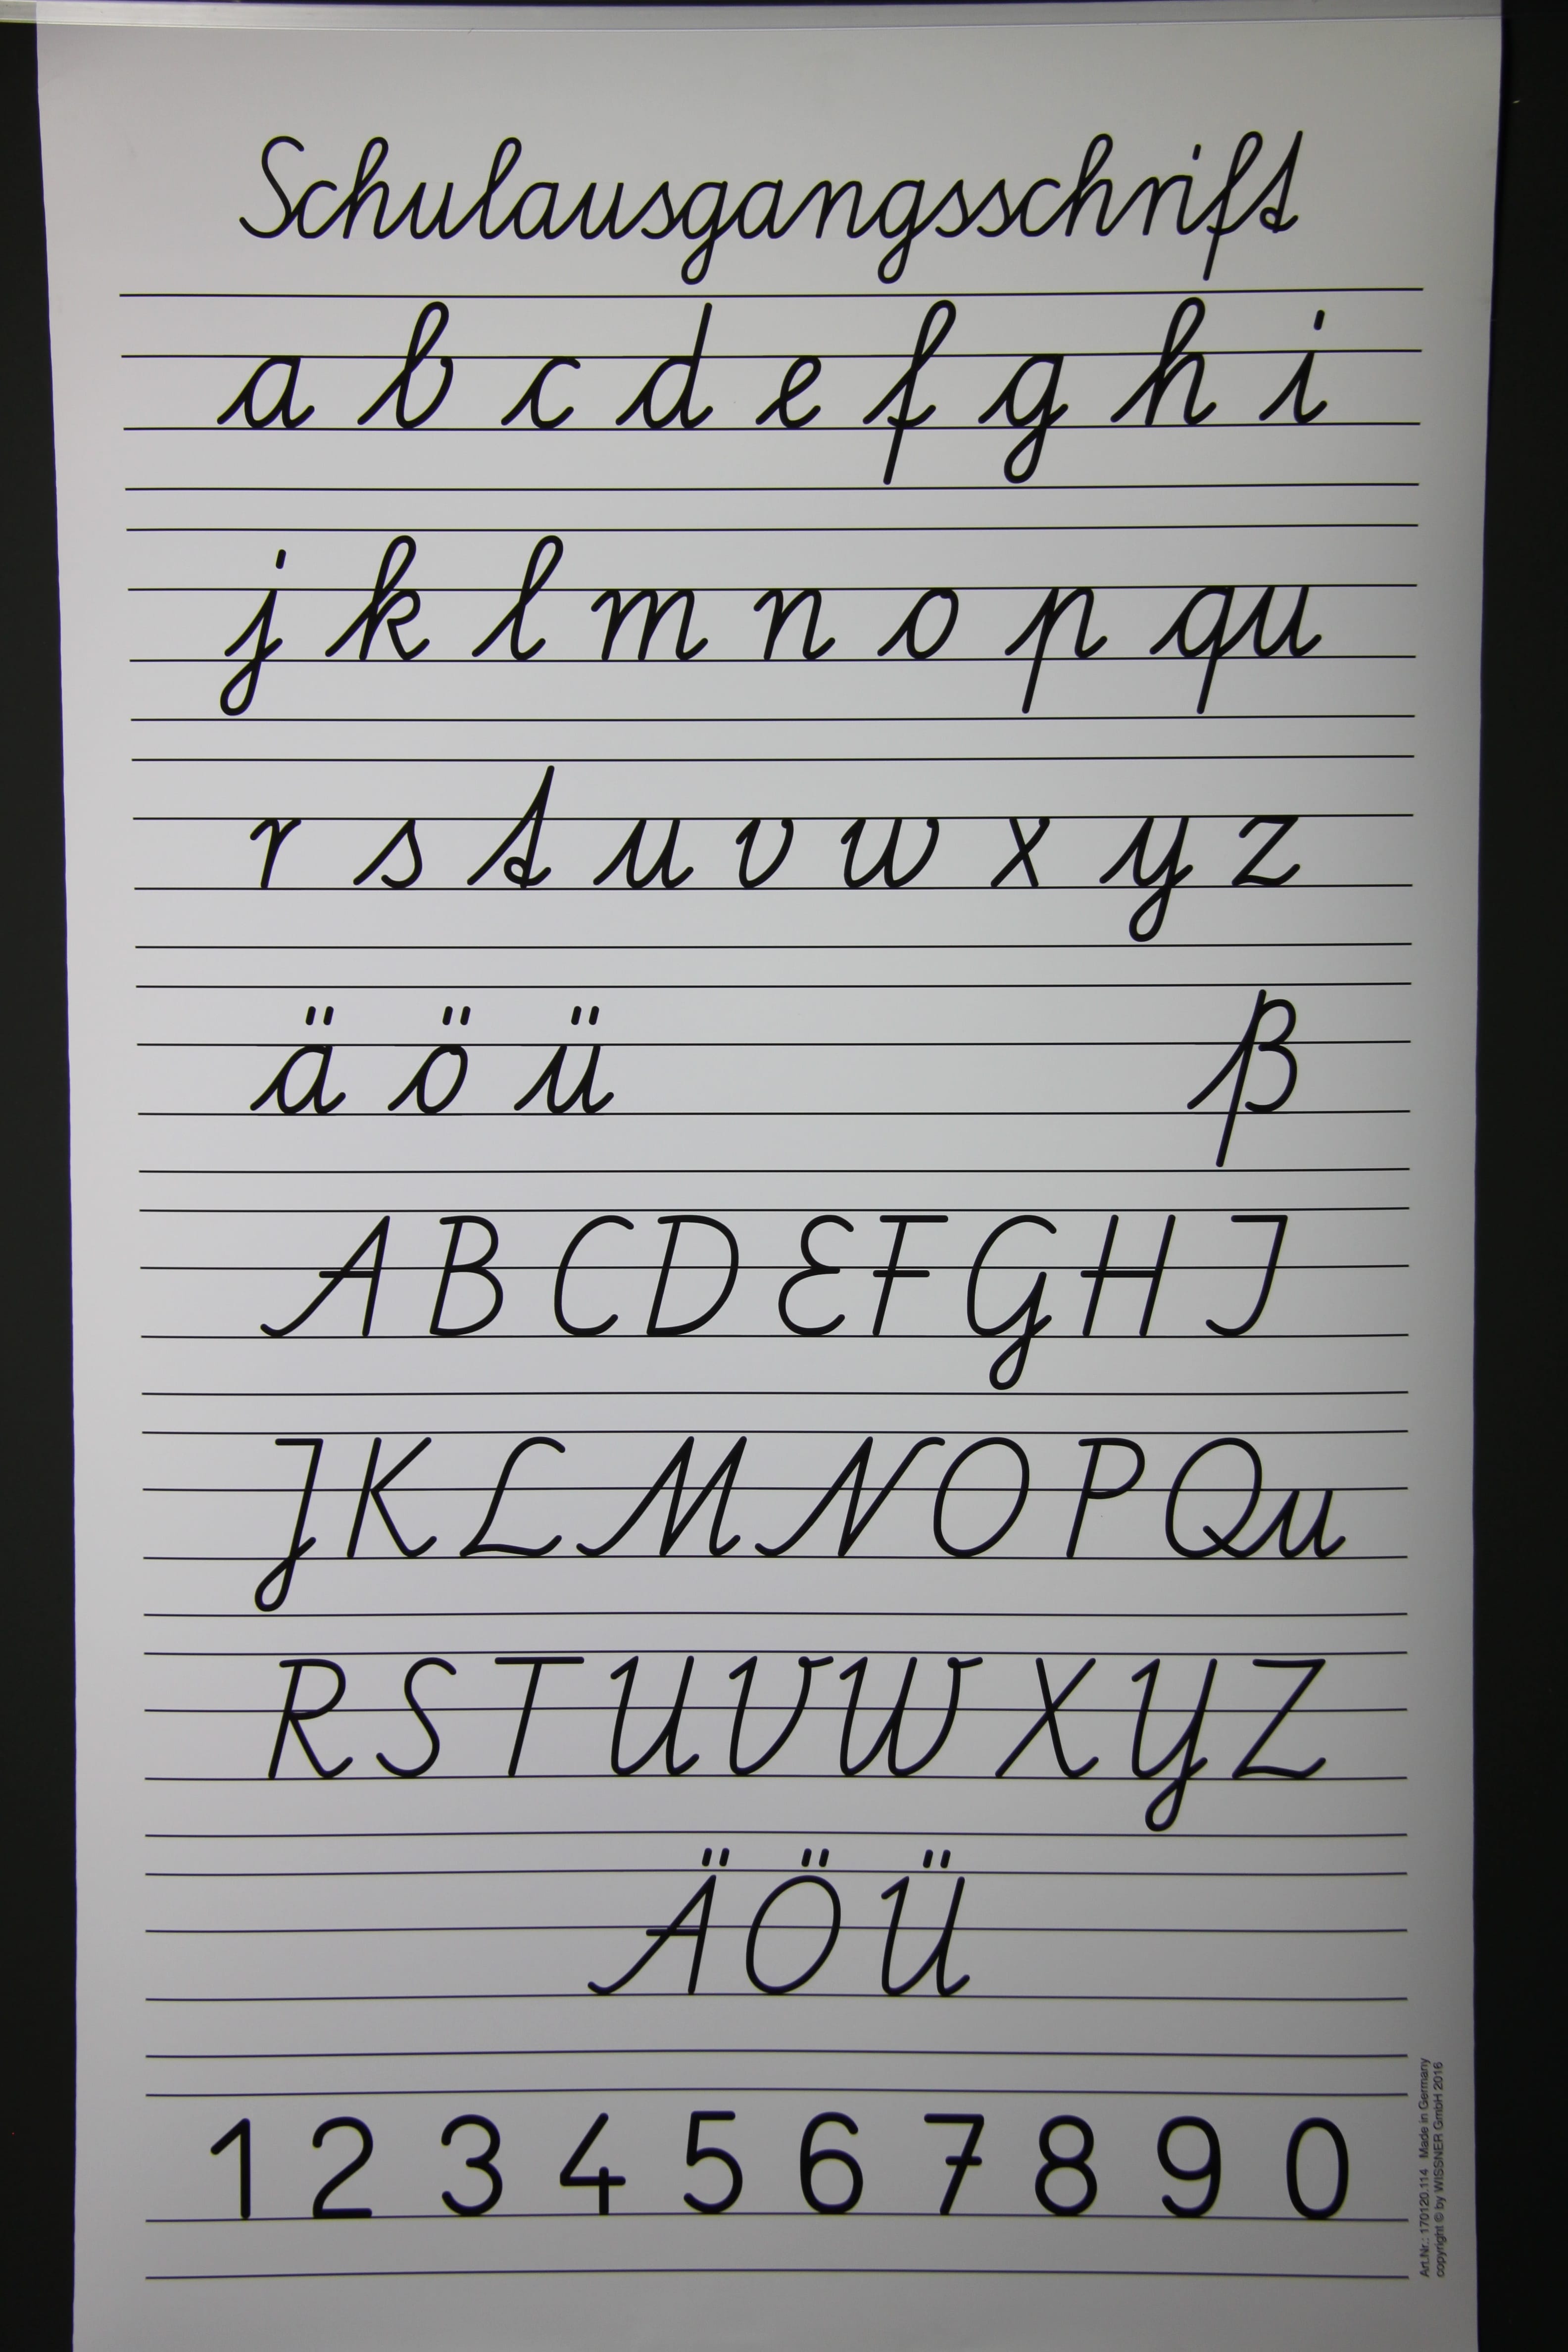 Schulausgangsschrift
a b c d e f g h i
j k l m n o p qu
r s t u v w x y z
ä ö ü ß
A B C D E F G H I
J K L M N O P Qu
R S T U V W X Y Z
Ä Ö Ü
1 2 3 4 5 6 7 8 9 0
Art.Nr.: 170120.114 Made in Germany
copyright © by WISSNER GmbH 2016